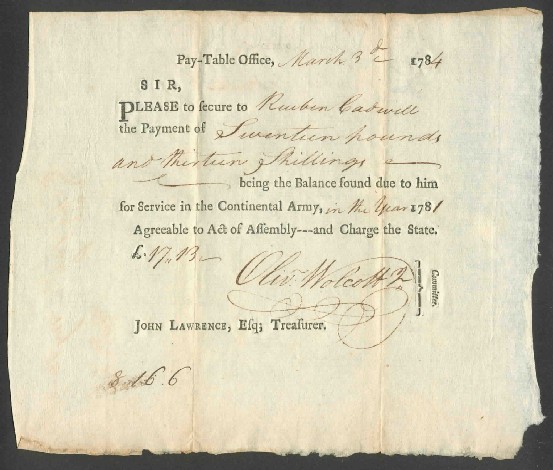 Pay-Table Office, March 3d 1784
SIR,
PLEASE to secure to Reuben Cadwell
the Payment of Seventeen pounds
and thirteen Shillings
being the Balance found due to him
for Service in the Continental Army, in the Year 1781
Agreeable to Act of Assembly---and Charge the State.
£.17,,13
Olivr. Wolcott Jr
Committee.
JOHN LAWRENCE, Esq; Treasurer.
6.6